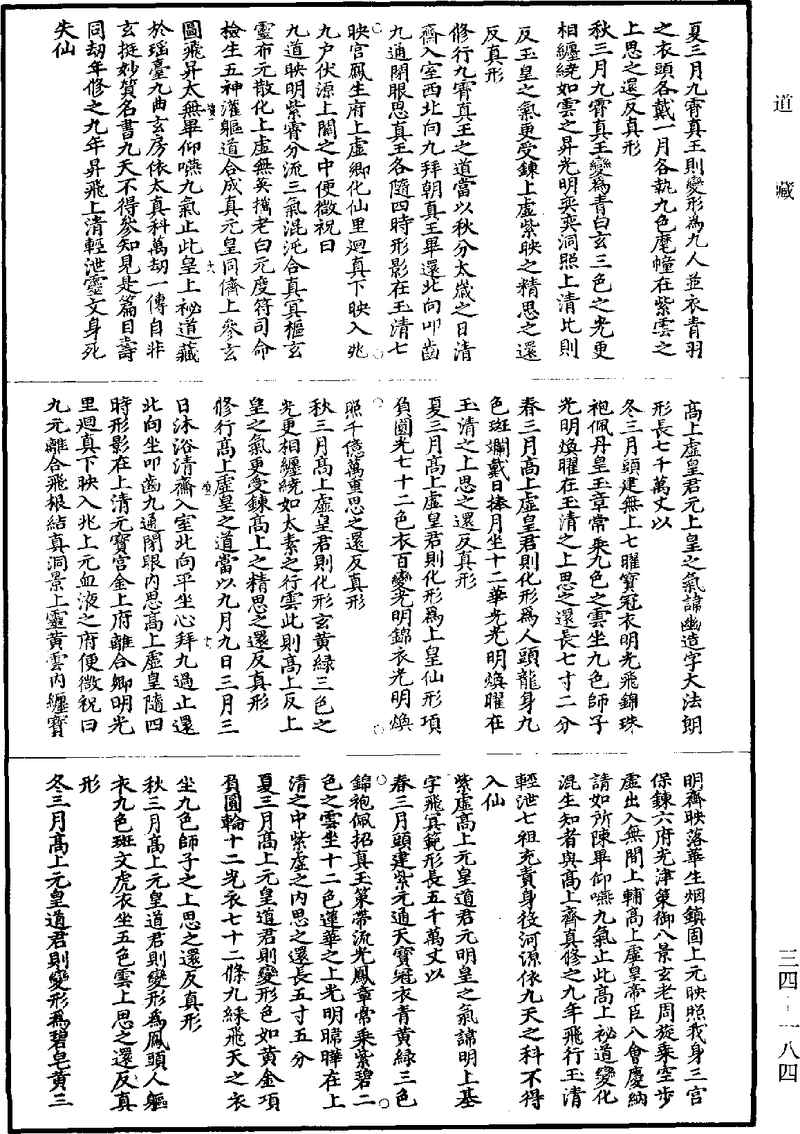 道藏
夏三月九霄真王則變形為九人並衣青羽
之衣頭各戴一月各執九色麾幢在紫雲之
上思之還反真形
秋三月九霄真王變為青白玄三色之光更
相纏繞如雲之昇光明奕奕洞照上清此則
反玉皇之氣更受鍊上虛紫映之精思之還
反真形
修行九霄真王之道當以秋分太歲之日清
齋入室西北向九拜朝真王畢還北向叩齒
九通閉眼思真王各隨四時形影在玉清七
映宮鳳生府上虛鄉化仙里迴真下映入兆
九户伏源上關之中便微祝曰
九道映明紫霄分流三氣混沌合真冥樞玄
靈布元散化上虛無英攜老白元度符司命
檢生五神灌軀道合成真元皇同儔上參玄
圖飛昇太無畢仰嚥九氣止此皇上祕道藏
於瑶臺九曲玄房依太真科萬劫一傳自非
玄挺妙質名書九天不得參知見是篇目壽
同劫年修之九年昇飛上清輕泄靈文身死
失仙
高上虛皇君元上皇之氣諱幽造字大法朗
形長七千萬丈以
冬三月頭建無上七曜寶冠衣明光飛錦珠
袍佩丹皇玉章常乘九色之雲坐九色師子
光明煥曜在玉清之上思之還長七寸二分
春三月高上虛皇君則化形為人頭龍身九
色斑斕戴日捧月坐十二華光光明煥曜在
玉清之上思之還反真形
夏三月高上虛皇君則化形為上皇仙形項
負圓光七十二色衣百變光明錦衣光明煥
照千億萬重思之還反真形
秋三月高上虛皇君則化形玄黃綠三色之
光更相纏繞如太素之行雲此則高上反上
皇之氣更受鍊高上之精思之還反真形
修行高上虛皇之道當以九月九日三月三
日沐浴清齋入室北向平坐心拜九過止還
北向坐叩齒九通閉眼內思高上虛皇隨四
時形影在上清元寶宮金上府離合鄉明光
里迴真下映入兆上元血液之府便微祝曰
九元離合飛根結真洞景上靈黃雲內纏寶
明齊映落華生烟鎮固上元映照我身三宮
保鍊六府光津策御八景玄老周旋乘空步
虛出入無間上輔高上虛皇帝臣八會慶納
請如所陳畢仰嚥九氣止此高上祕道變化
混生知者與高上齊真修之九年飛行玉清
輕泄七祖充責身役河源依九天之科不得
入仙
紫虛高上元皇道君元明皇之氣諱明上基
字飛冥範形長五千萬丈以
春三月頭建紫元通天寶冠衣青黃綠三色
錦袍佩招真玉策帶流光鳳章常乘紫碧二
色之雲坐十二色蓮華之上光明暐曄在上
清之中紫虛之內思之還長五寸五分
夏三月高上元皇道君則變形色如黃金項
負圓輪十二光衣七十二條九綵飛天之衣
坐九色師子之上思之還反真形
秋三月高上元皇道君則變形為鳳頭人軀
衣九色斑文虎衣坐五色雲上思之還反真
形
冬三月高上元皇道君則變形為碧皂黃三
三四-一八四